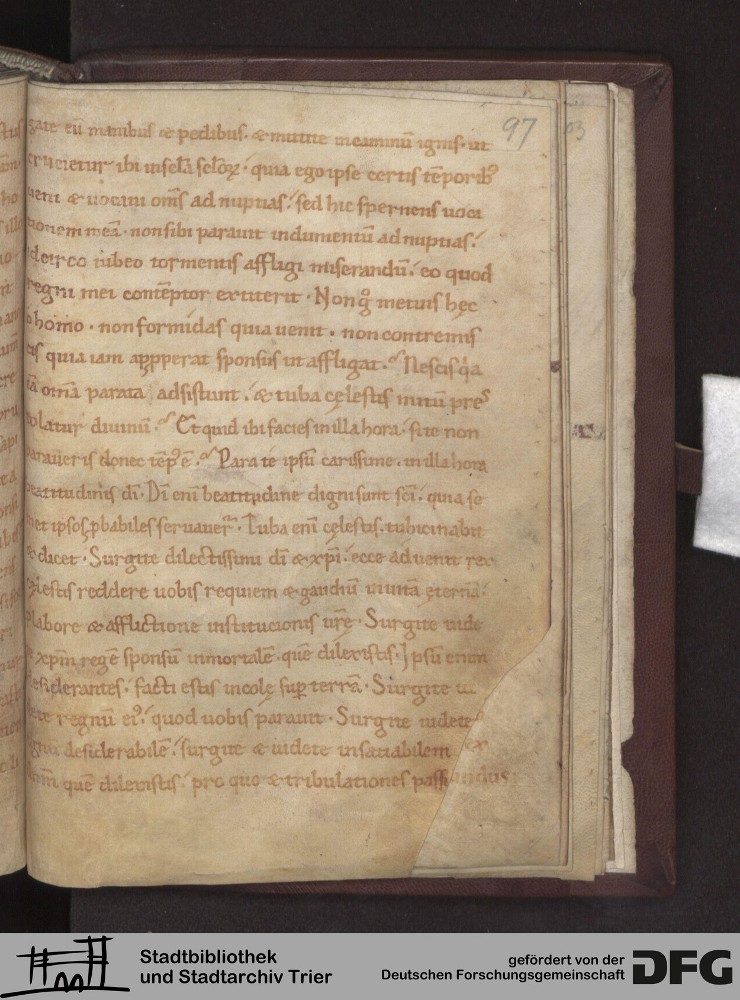 gate eū manibus & pedibus. & mittite in caminū ignis. ut
crucietur ibi in sc̄la sc̄loꝝ. quia ego ipse certis tēporibꝰ
ueni & uocaui om̄s ad nuptias. sed hic spernens uoca
tionem meā. non sibi parauit indumentū ad nuptias.
idcirco iubeo tormentis affligi miserandū. eo quod
regni mei contēptor extiterit. Non g̊ metuis hęc
o homo. non formidas quia uenit. non contremis
cis quia iam appperat sponsus ut affligat. Nescis q̇a
iā om̄a parata adsistunt. & tuba cęlestis nutū pres
tolatur diuinū. Et quid ibi facies in illa hora. si te non
paraueris donec tēpꝰ ē. Para te ipsū carissime. in illa hora
beatitudinis dī. Dī enī beatitudine digni sunt sc̄i. quia se
met ipsos ꝓbabiles seruauer̄. Tuba enī cęlestis. tubicinabit
& dicet. Surgite dilectissimi dī & xp̄i. ecce aduenit rex
cęlestis reddere uobis requiem & gaudiū in uita ęterna.
ꝓ labore & afflictione institucionis ur̄ę. Surgite uide
te xp̄m regē sponsū inmortalē. quē dilexistis. Ipsū enim
desiderantes. facti estis incolę suꝑ terrā. Surgite ui
dete regnū eiꝰ. quod uobis parauit. Surgite uidete
desiderabilē. surgite & uidete insatiabilem
quē dilexistis. pro quo & tribulationes passi
97
Stadtbibliothek
und Stadtarchiv Trier
gefördert von der
Deutschen Forschungsgemeinschaft
DFG